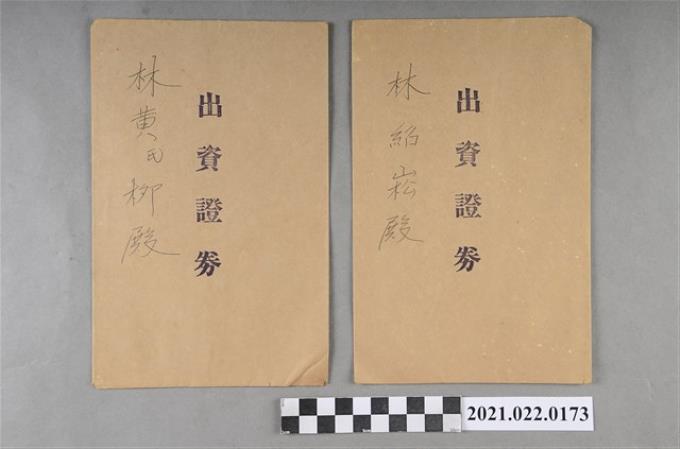 林黄氏柳殿
出資證券
林紹崧殿
出資證券
2021.022.0173